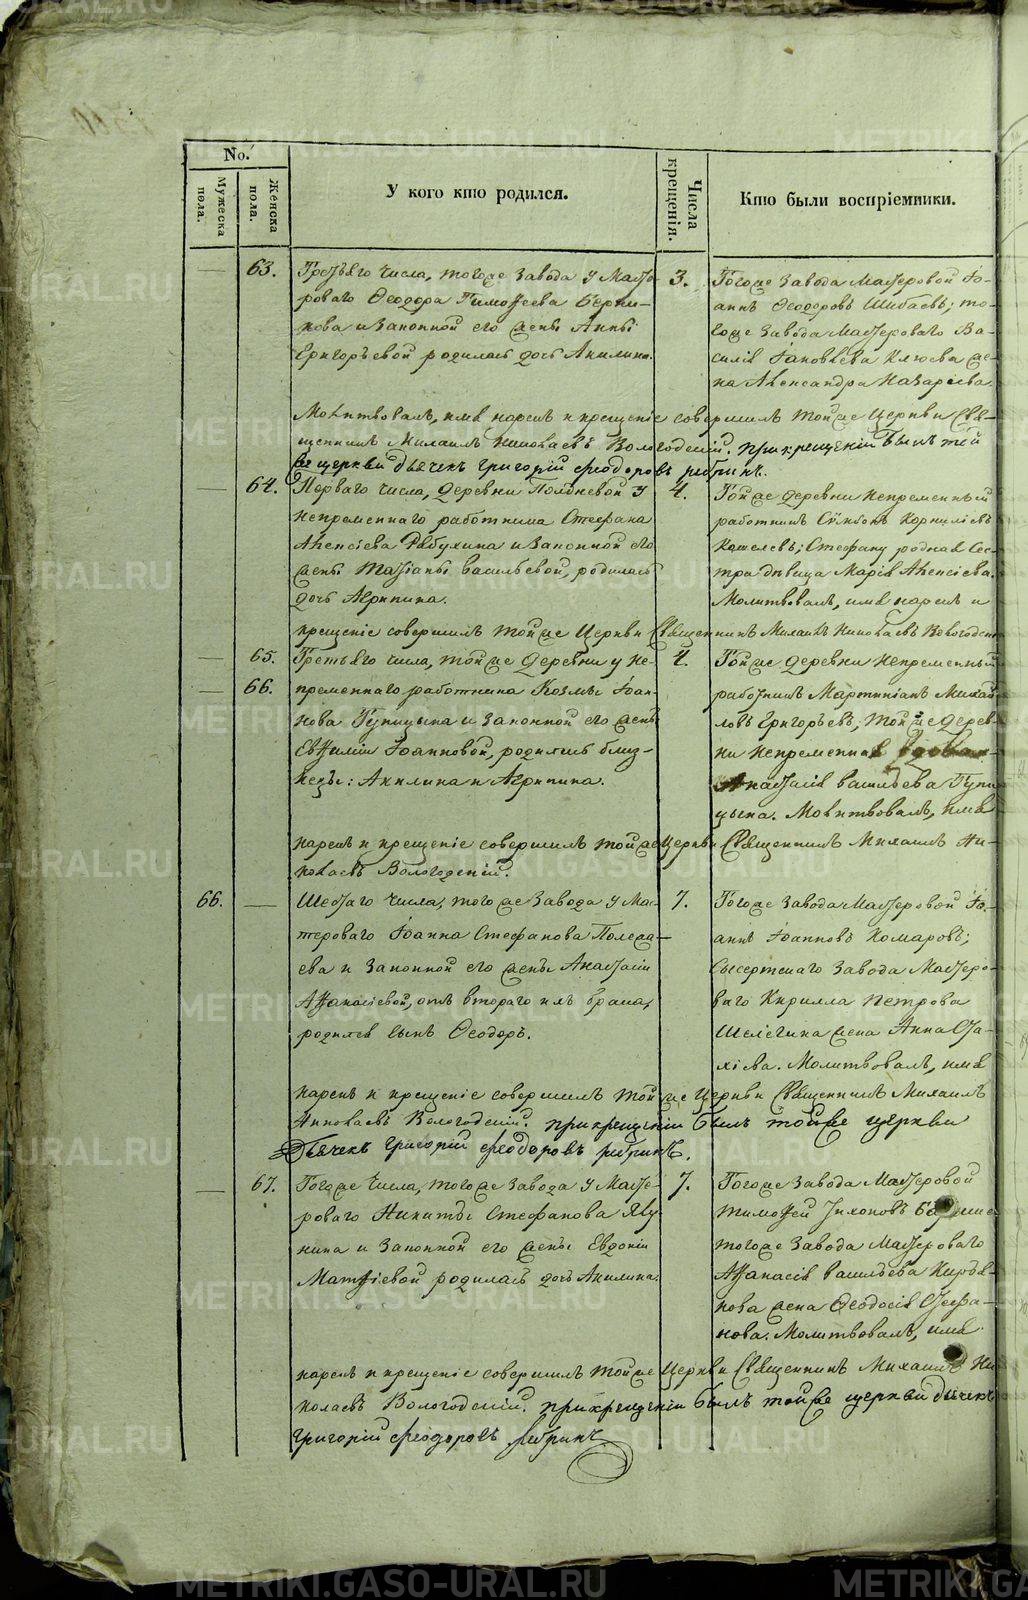 METRIKI.GASO-URAL.RU
No.
Мужеска пола.
Женска пола.
У кого кто родился.
Числа крещенія.
Кто были воспріемники.
63.
Третьяго числа, тогоже завода у Масте-
роваго Ѳеодора Тимоѳеева
и законной его жены Анны
Григорьевой родилась дочь Акилина.
3.
Тогоже завода Мастеровой Іо-
аннъ Ѳеодоровъ Шибаевъ; то-
гоже завода Мастероваго Ва-
силія Іаковлева Клюева же-
на Александра Назарьева.
Молитвовалъ, имя нарекъ и крещеніе совершилъ тойже Церкви Свя-
щенникъ Михаилъ Николаевъ Вологодскій. при крещеніи былъ той
же церкви дьячекъ григорій феодоровъ
64.
Перваго числа, деревни Полдневой у
непременнаго работника Стефана
Алексіева Рябухина и законной его
жены Татіаны Васильевой, родилась
дочь Агрипина.
4.
Тойже деревни непременный
работникъ Корниліевъ
Кошелевъ; Стефану родная сес-
тра девица Марія Алексіева.
Молитвовалъ, имя нарекъ и
крещеніе совершилъ тойже Церкви Священникъ Михаилъ Николаевъ Вологодскій
65.
Третьяго числа, тойже деревни у не-
4.
Тойже деревни непременный
66.
пременнаго работника Козмы Іоан-
нова и законной его жены
Евѳиміи Іоанновой, родились близ-
нецы: Акилина и Агрипина.
работникъ Мартиніанъ Михай-
ловъ Григорьевъ; тойже дерев-
ни непременная вдова
Анастасія Васильева
Молитвовалъ, имя
нарекъ и крещеніе совершилъ тойже Церкви Священникъ Михаилъ Ни-
колаевъ Вологодскій.
66.
Шестаго числа, тогоже завода у Мас-
тероваго Іоанна Стефанова
и законной его жены Анастасіи
Аѳанасіевой, отъ втораго ихъ брака,
родился сынъ Ѳеодоръ.
7.
Тогоже завода Мастеровой Іо-
аннъ Іоанновъ Комаровъ;
Сысертскаго завода Мастеро-
ваго Кирилла Петрова
Шелегина жена Анна
Молитвовалъ, имя
нарекъ и крещеніе совершилъ тойже Церкви Священникъ Михаилъ
Николаевъ Вологодскій. при крещеніи былъ тойже церкви
Дьячекъ григорій феодоровъ
67.
Тогоже числа, тогоже завода у Масте-
роваго Никиты Стефанова
и законной его жены Евдокіи
Матѳіевой родилась дочь Акилина.
7.
Тогоже завода Мастеровой
Тимоѳей Тихоновъ
тогоже завода Мастероваго
Аѳанасія Васильева
жена Ѳеодосія Стефа-
нова. Молитвовалъ, имя
нарекъ и крещеніе совершилъ тойже Церкви Священникъ Михаилъ Ни-
колаевъ Вологодскій. при крещеніи былъ тойже церкви дьячекъ
григорій феодоровъ